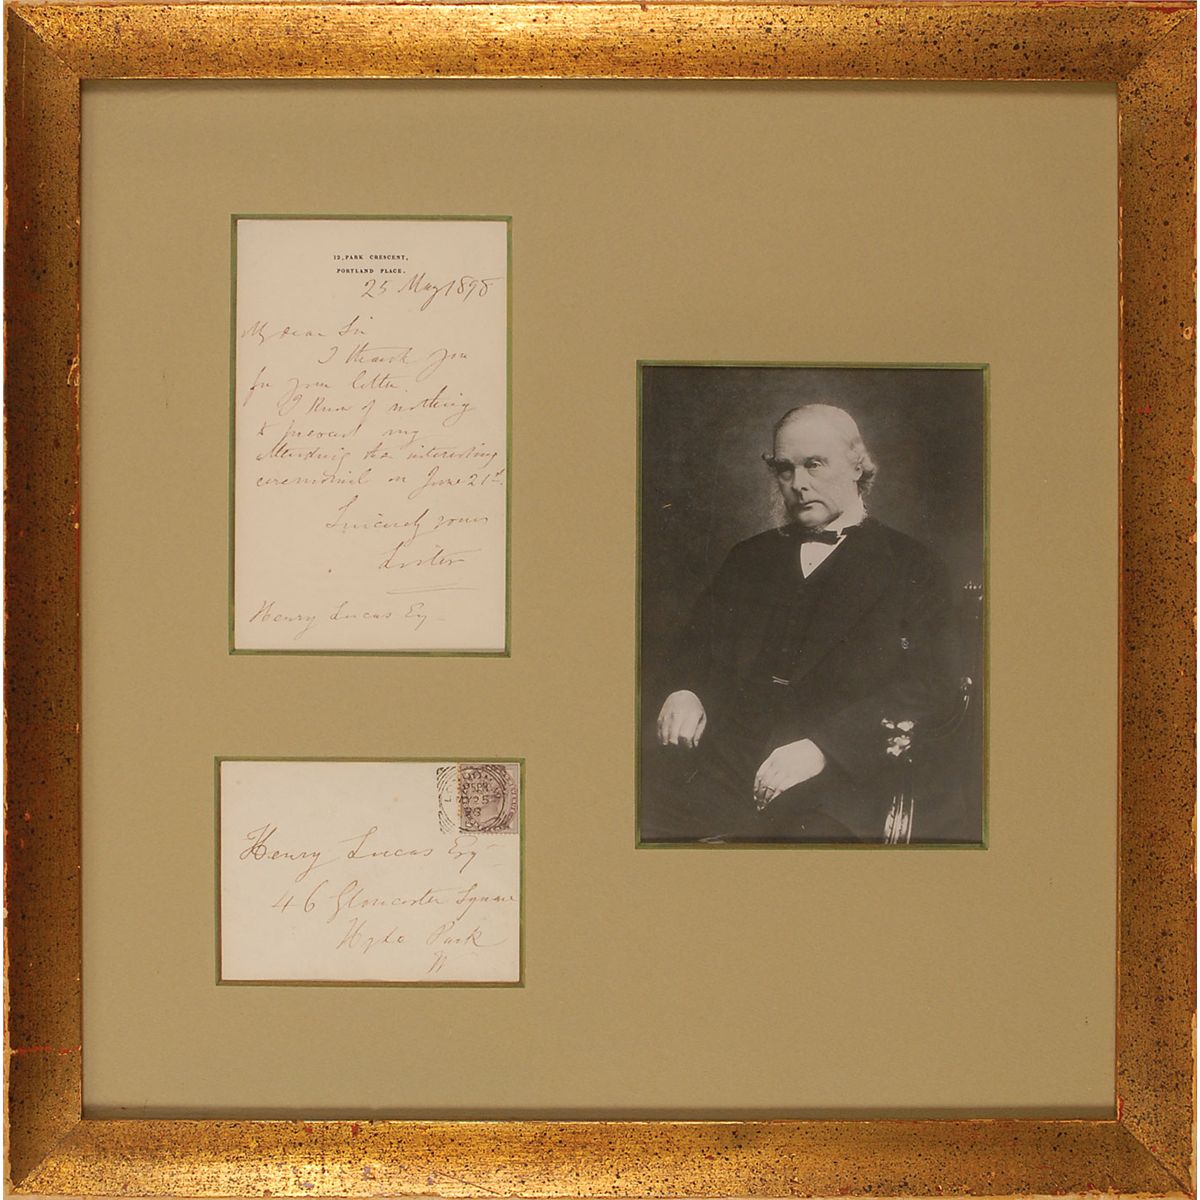 12, PARK CRESCENT,
PORTLAND PLACE.
25 May 1898
My dear Sir
I thank you
for your letter.
I know of nothing
to prevent my
attending the interesting
ceremonial on June 21st.
Sincerely yours
Lister
Henry Lucas Esq
LONDON
MY 25
98
Henry Lucas Esq
46 Gloucester Square
Hyde Park
W